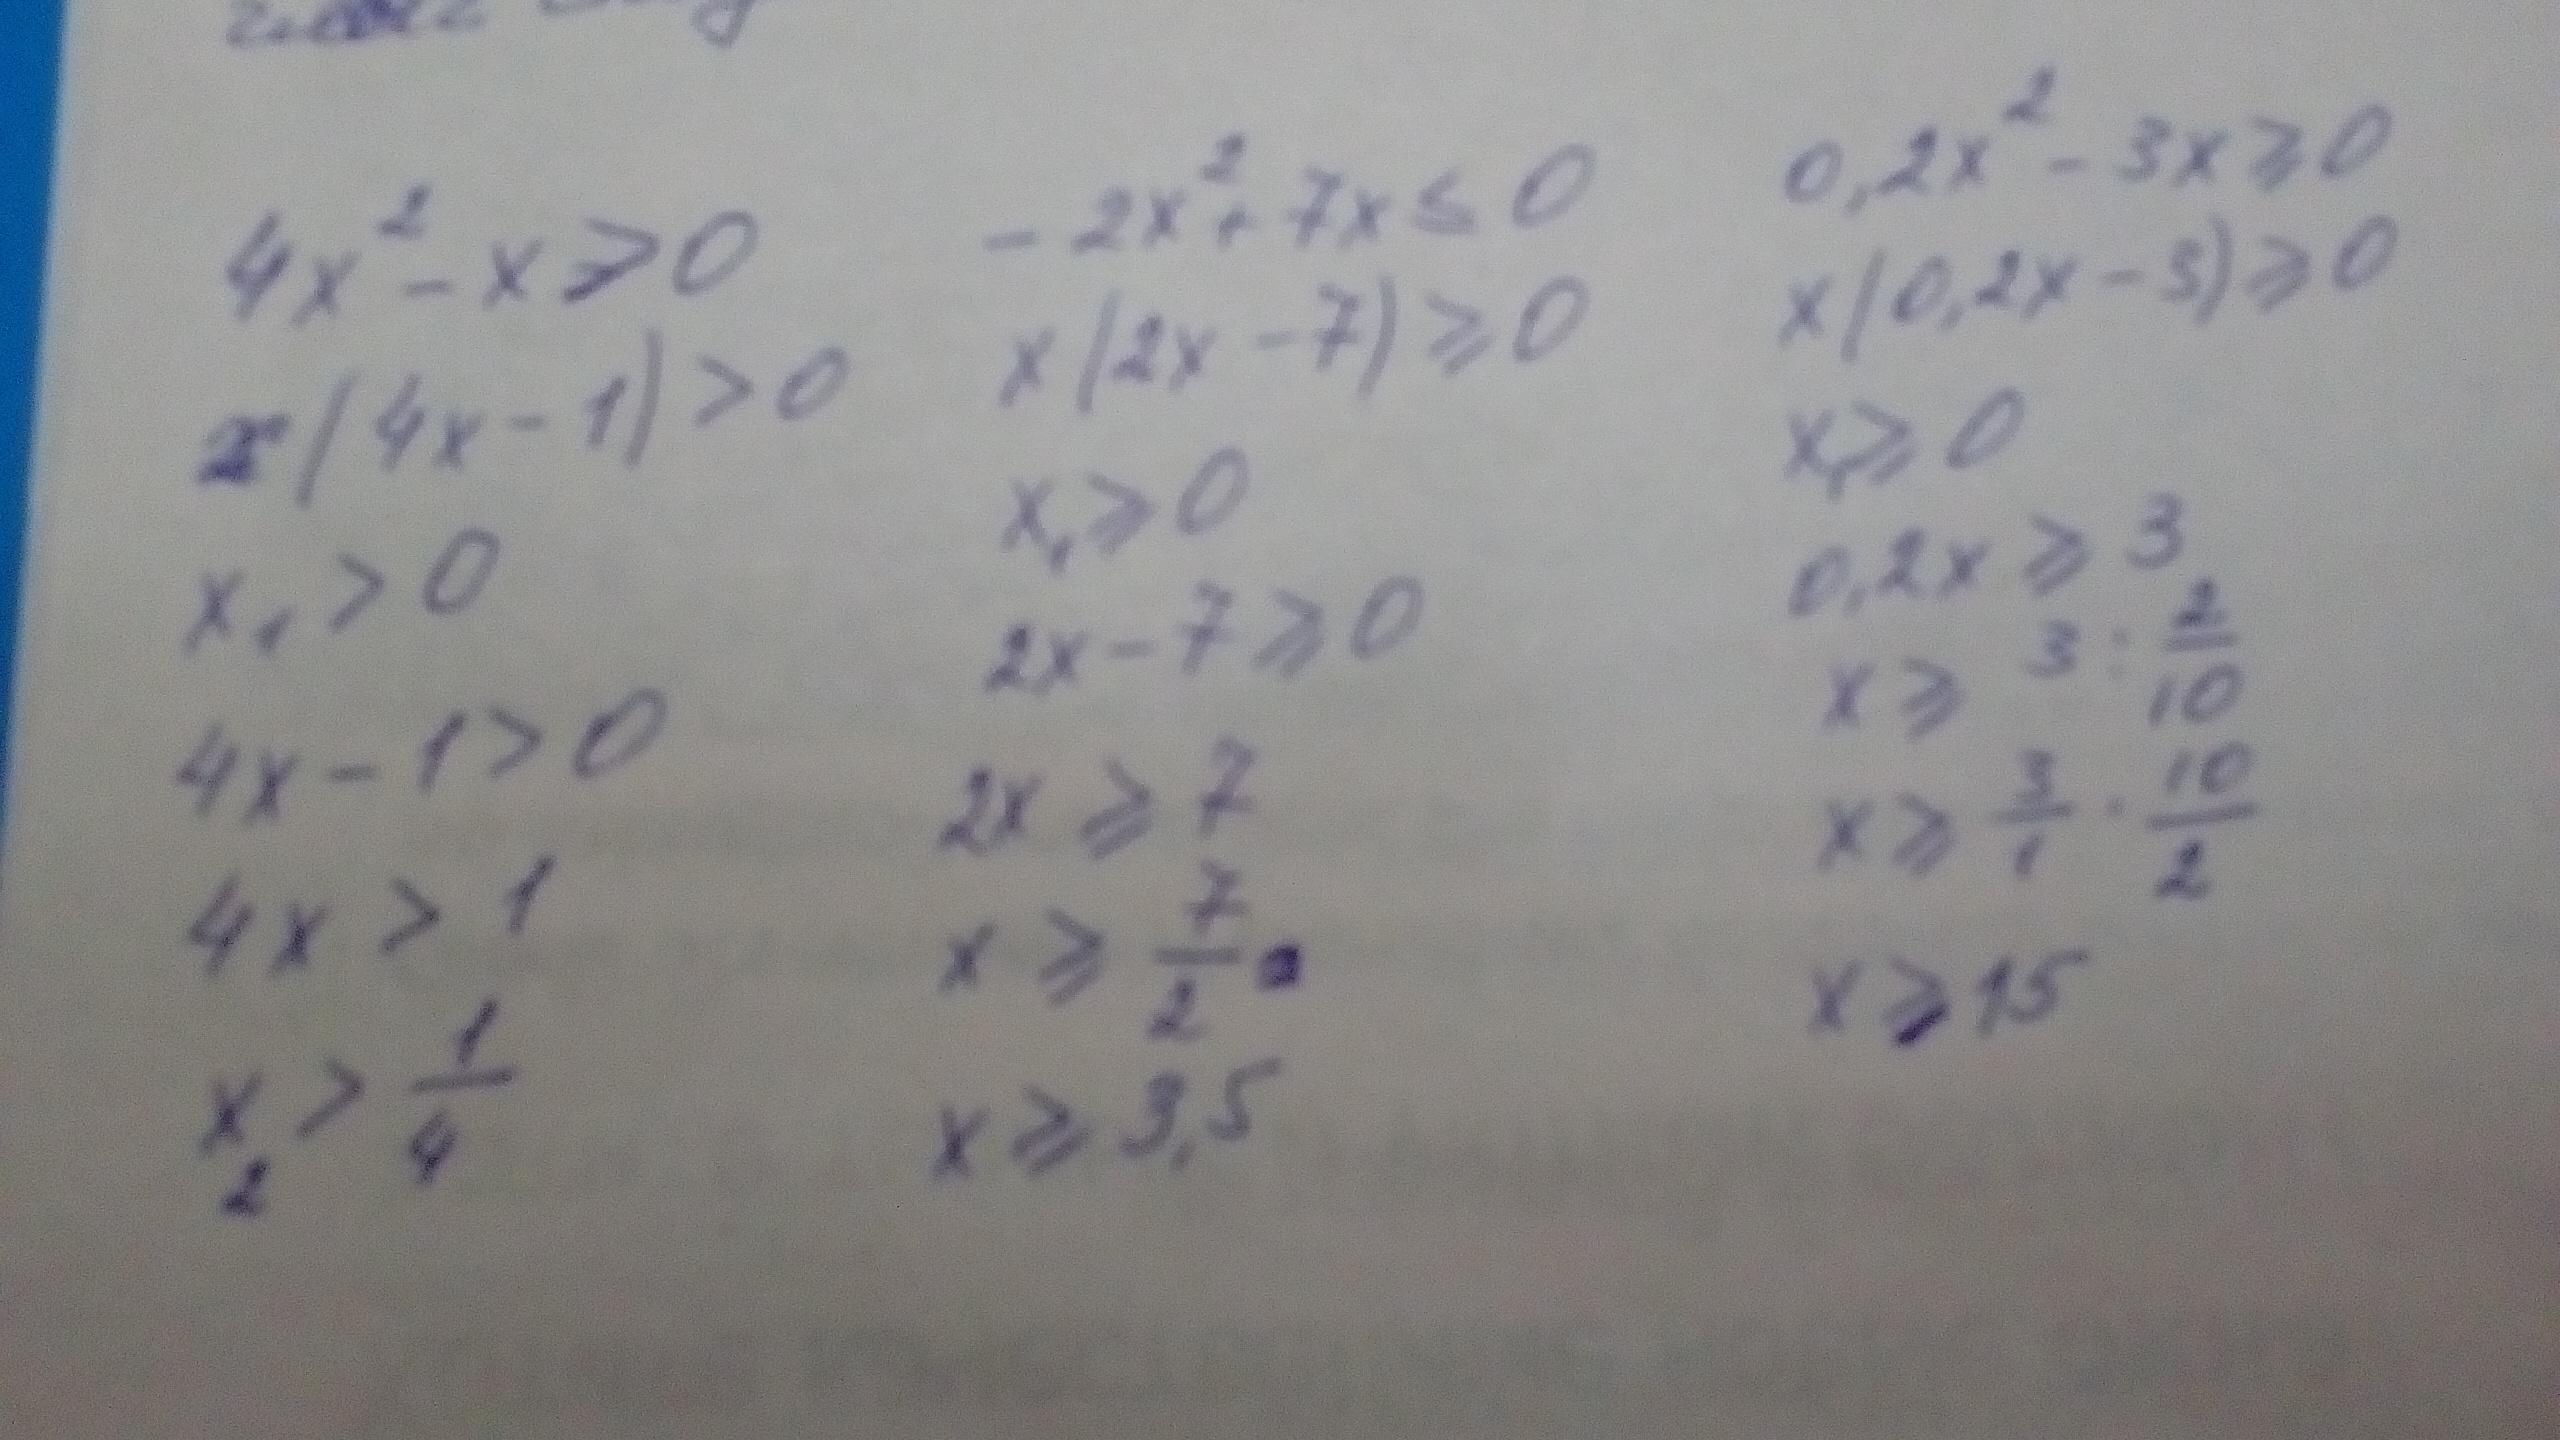 4x² - x > 0
x(4x - 1) > 0
x₁ > 0
4x - 1 > 0
4x > 1
x₂ > 1/4
-2x² + 7x ≤ 0
x(2x - 7) ≥ 0
x₁ ≥ 0
2x - 7 ≥ 0
2x ≥ 7
x ≥ 7/2
x ≥ 3,5
0,2x² - 3x ≥ 0
x(0,2x - 3) ≥ 0
x₁ ≥ 0
0,2x ≥ 3
x ≥ 3 : 2/10
x ≥ 3/1 · 10/2
x ≥ 15